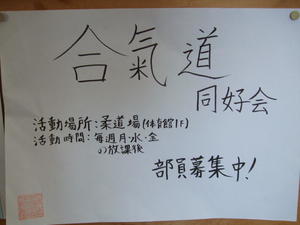 合氣道
同好会
活動場所:柔道場(体育館1F)
活動時間:毎週月・水・金
の放課後
部員募集中!